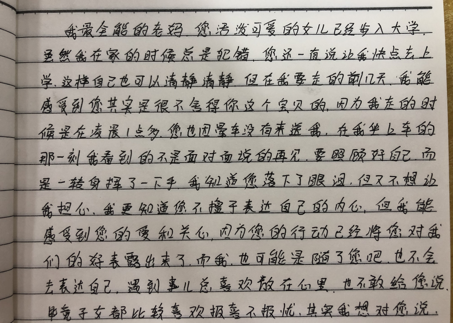 我最全能的老妈，您活泼可爱的女儿已经步入大学，
虽然我在家的时候总是犯错，您还一直说让我快点去上
学，这样自己也可以清静清静，但在我要走的前几天，我能
感受到您其实是很不舍得你这个宝贝的，因为我走的时
候是在凌晨1点多，您也因晕车没有来送我，在我坐上车的
那一刻我看到的不是面对面说的再见，要照顾好自己，而
是一转身挥了一下手，我知道您落下了眼泪，但又不想让
我担心，我更知道您不擅于表达自己的内心，但我能
感受到您的爱和关心，因为您的行动已经将您对我
们的好表露出来了，而我也可能是随了您吧，也不会
去表达自己，遇到事儿总喜欢散在心里，也不敢给您说，
毕竟子女都比较喜欢报喜不报忧，其实我想对您说，